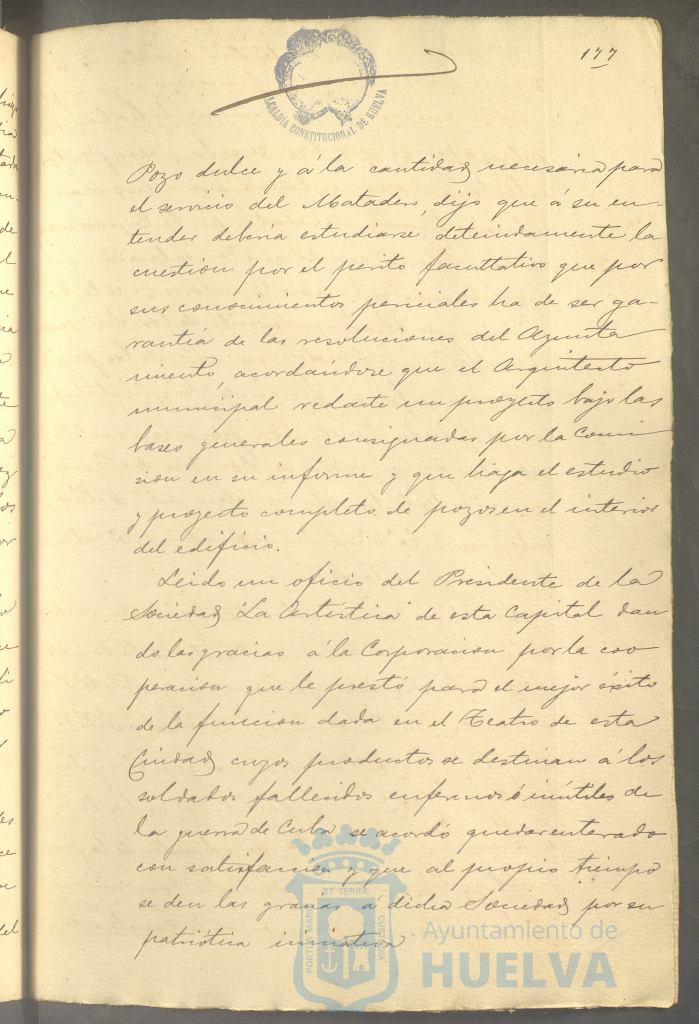 177
ALCALDIA CONSTITUCIONAL DE HUELVA
Pozo dulce y á la cantidad necesaria para
el servicio del Matadero, dijo que á su en-
tender debería estudiarse detenidamente la
cuestion por el perito facultativo que por
sus conocimientos periciales ha de ser ga-
rantía de las resoluciones del Ayunta
miento, acordándose que el Arquitecto
municipal redacte un proyecto bajo las
bases generales consignadas por la Comi
sion en su informe y que haga el estudio
y proyecto completo de pozos en el interior
del edificio.
Leido un oficio del Presidente de la
Sociedad "La Artistica" de esta Capital dan
do las gracias á la Corporacion por la coo
peracion que le prestó para el mejor éxito
de la funcion dada en el Teatro de esta
Ciudad cuyos productos se destinan á los
soldados fallecidos enfermos é inútiles de
la guerra de Cuba se acordó quedar enterado
con satisfaccion y que al propio tiempo
se den las gracias á dicha Sociedad por su
patriótica iniciativa
PORTUS MARIS ET TERRÆ CUSTODIA
Ayuntamiento de
HUELVA